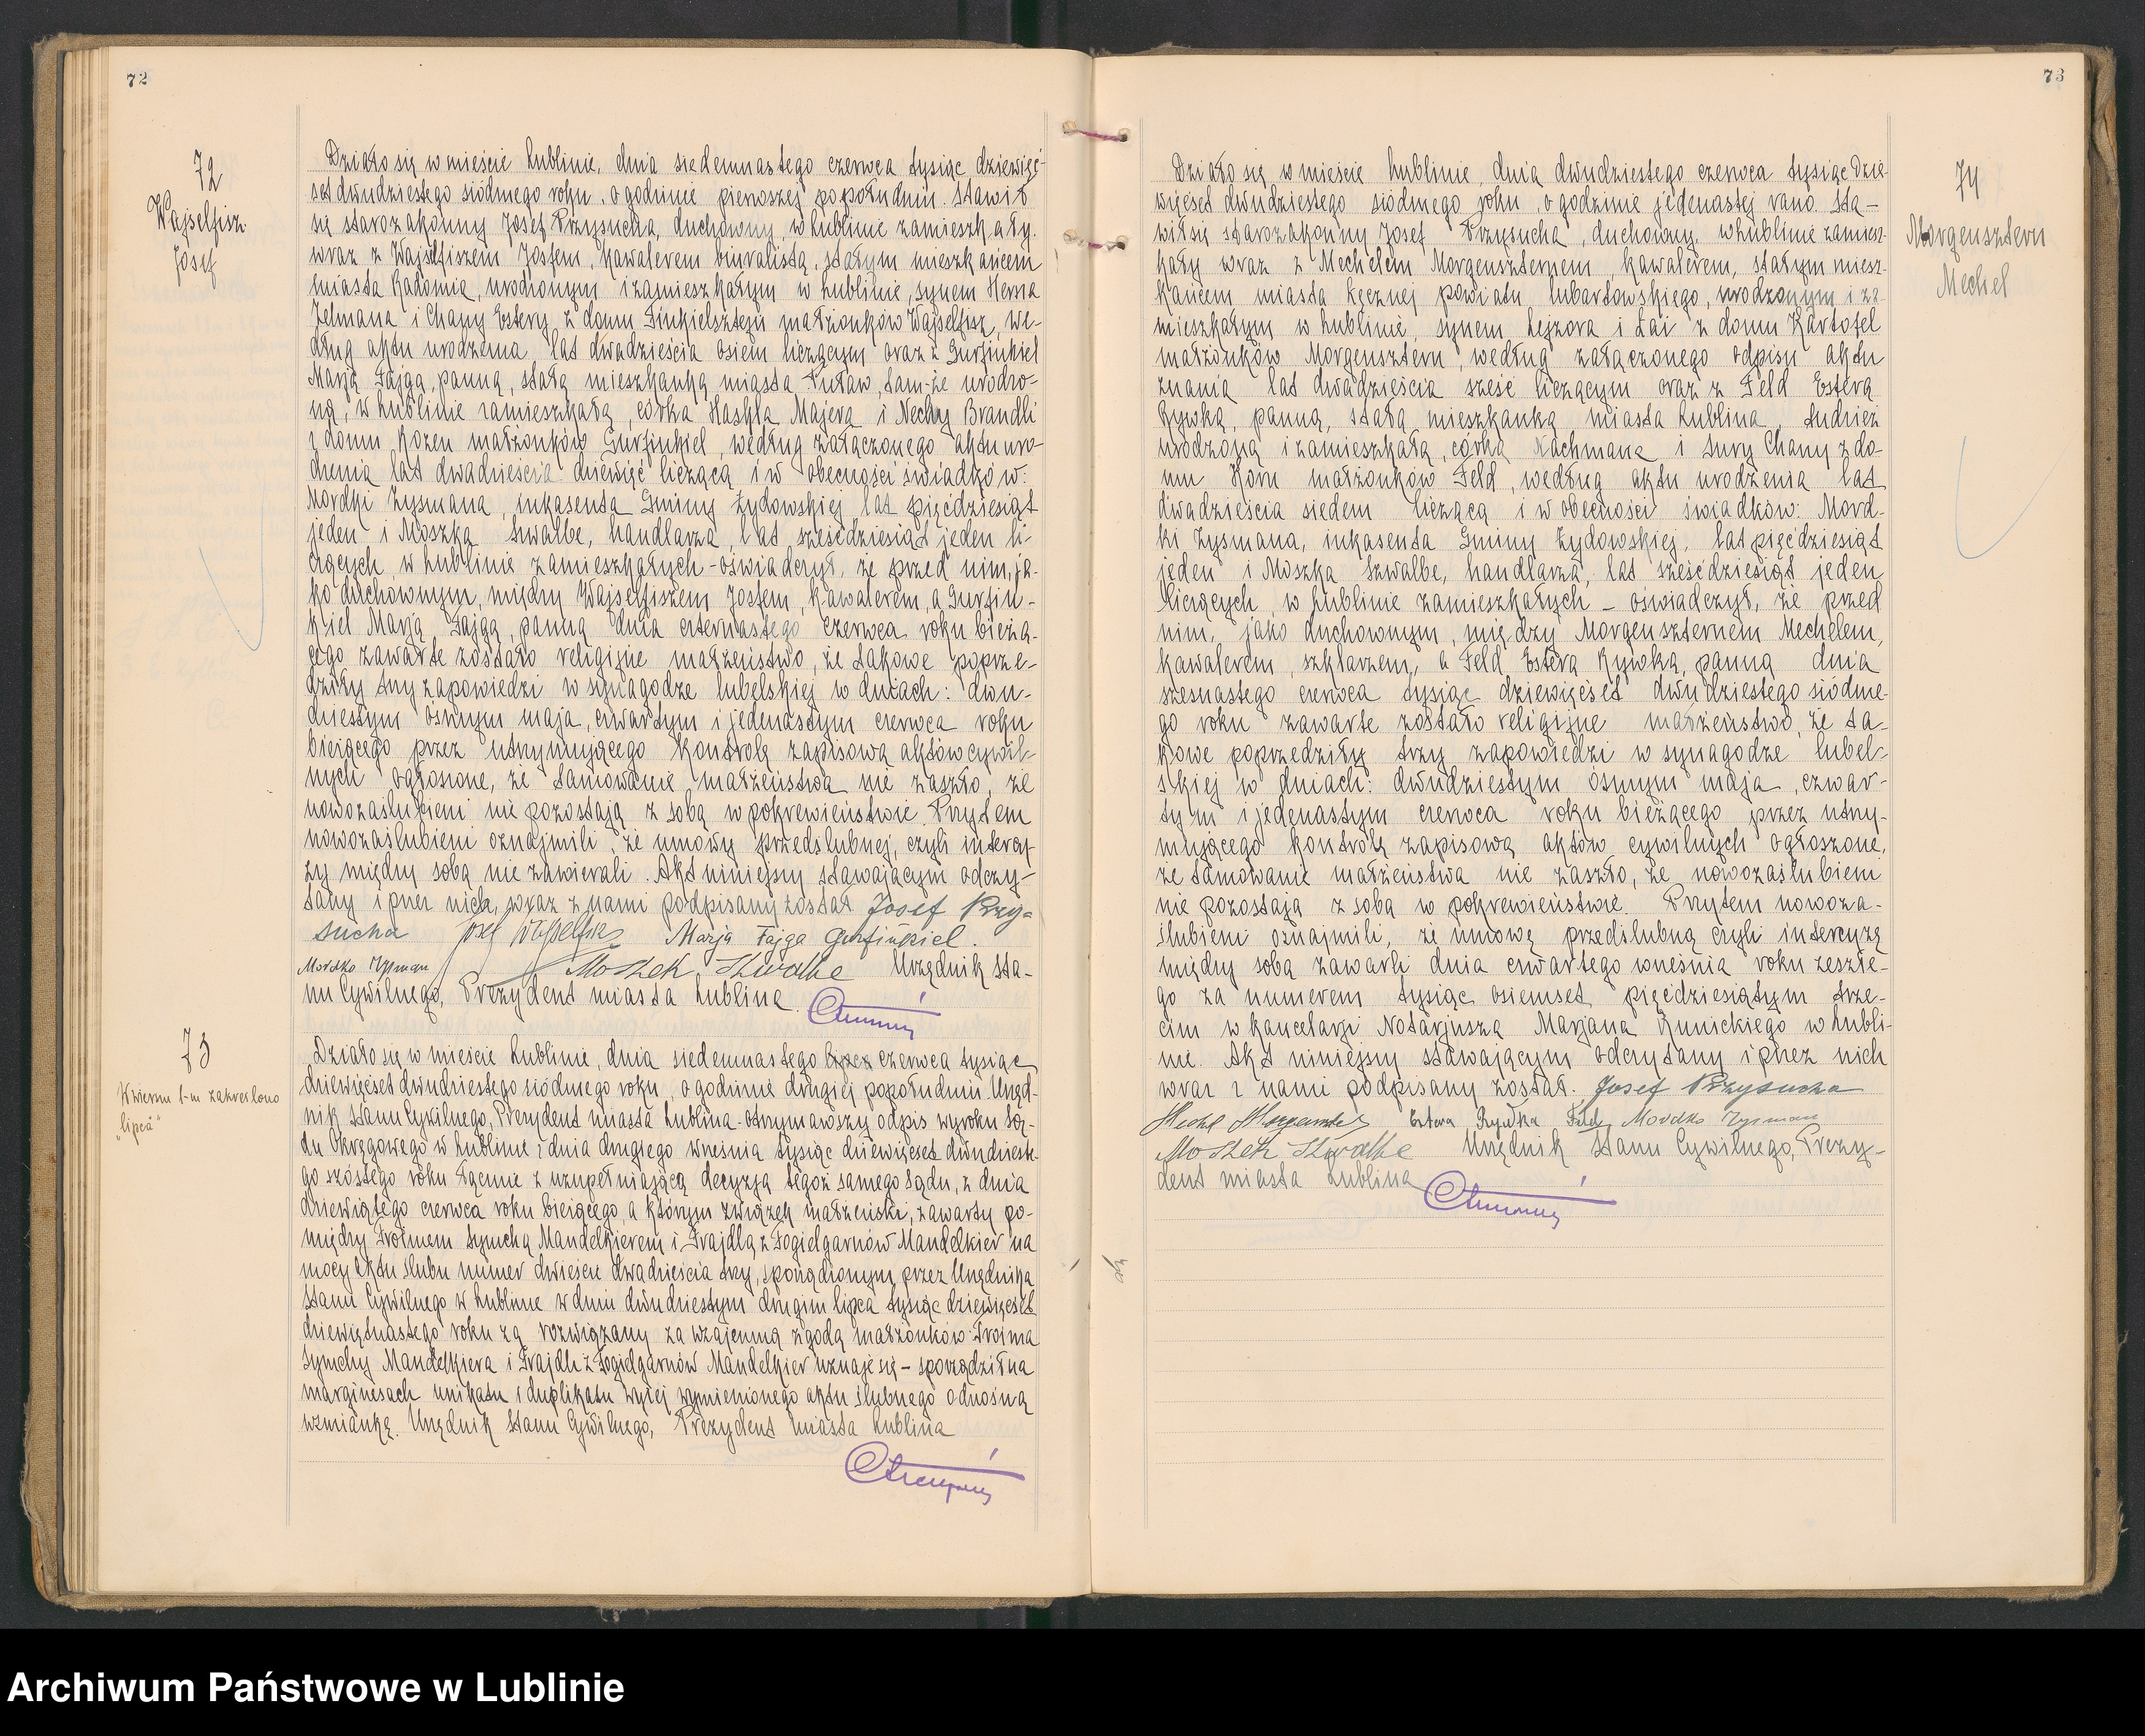 72
72
Wajselfisz
Josef
Działo się w mieście Lublinie, dnia siedemnastego czerwca tysiąc dziewięć-
set dwudziestego siódmego roku, o godzinie pierwszej popołudniu. Stawił
się starozakonny Josef Przysucha, duchowny, w Lublinie zamieszkały.
wraz z Wajselfiszem Josfem, kawalerem biuralistą, stałym mieszkańcem
miasta Radomia, urodzonym i zamieszkałym w Lublinie, synem Hersza
Zelmana i Chany Estery z domu Finkielsztejn małżonków Wajselfisz, we-
dług aktu urodzenia lat dwadzieścia osiem liczącym oraz z Gurfinkiel
Marją Fajgą, panną, stałą mieszkanką miasta Puław, tam-że urodzo-
ną, w Lublinie zamieszkałą, córką Haskla Majera i Nechy Brandli
z domu Kozen małżonków Gurfinkiel, według załączonego aktu uro-
dzenia lat dwadzieścia dziewięć liczącą i w obecności świadków:
Mordki Zysmana, inkasenta Gminy Żydowskiej lat pięćdziesiąt
jeden i Moszka Szwalbe, handlarza, lat sześćdziesiąt jeden li-
czących, w Lublinie zamieszkałych - oświadczył, że przed nim, ja-
ko duchownym, między Wajselfiszem Josfem, kawalerem, a Gurfin-
kiel Marją Fajgą, panną dnia czternastego czerwca roku bieżą-
cego zawarte zostało religijne małżeństwo, że takowe poprze-
dziły trzy zapowiedzi w synagodze lubelskiej w dniach: dwu-
dziestym ósmym maja, czwartym i jedenastym czerwca roku
bieżącego przez utrzymującego kontrolę zapisową aktów cywil-
nych ogłoszone, że tamowanie małżeństwa nie zaszło, że
nowozaślubieni nie pozostają z sobą w pokrewieństwie. Przytem
nowozaślubieni oznajmili, że umowy przedślubnej, czyli intercy-
zy między sobą nie zawierali. Akt niniejszy stawającym odczy-
tany i przez nich, wraz z nami podpisany został Josef Przy-
sucha Josef Wajselfisz Marja Fajga Gurfinkiel.
Mordko Zysman Moszek Szwalbe Urzędnik Sta-
nu Cywilnego, Prezydent miasta Lublina
73
W wierszu 1-m zakreślono
„lipca"
Działo się w mieście Lublinie, dnia siedemnastego lipca czerwca tysiąc
dziewięćset dwudziestego siódmego roku, o godzinie drugiej popołudniu Urzęd-
nik Stanu Cywilnego, Prezydent miasta Lublina - otrzymawszy odpis wyroku Są-
du Okręgowego w Lublinie z dnia drugiego września tysiąc dziewięćset dwudzieste-
go szóstego roku łącznie z uzupełniającą decyzją tegoż samego Sądu, z dnia
dziewiątego czerwca roku bieżącego, a którym związek małżeński, zawarty po-
między Froimem Symchą Mandelkierem i Frajdlą z Fogielgarnów Mandelkier na
mocy aktu ślubu numer dwieście dwadzieścia trzy, sporządzonym przez Urzędnika
Stanu Cywilnego w Lublinie w dniu dwudziestym drugim lipca tysiąc dziewięćset
dziewiętnastego roku za rozwiązany za wzajemną zgodą małżonków Froima
Symchy Mandelkiera i Frajdli z Fogielgarnów Mandelkier uznaje się - sporządził na
marginesach unikatu i duplikatu wyżej wymienionego aktu ślubnego odnośną
wzmiankę. Urzędnik Stanu Cywilnego, Prezydent miasta Lublina
73
74
Morgensztern
Mechel
Działo się w mieście Lublinie, dnia dwudziestego czerwca tysiąc dzie-
więćset dwudziestego siódmego roku, o godzinie jedenastej rano. Sta-
wił się starozakonny Josef Przysucha, duchowny, w Lublinie zamiesz-
kały wraz z Mechelem Morgenszternem, kawalerem, stałym miesz-
kańcem miasta Łęcznej powiatu lubartowskiego, urodzonym i za-
mieszkałym w Lublinie, synem Lejzora i Łai z domu Kartofel
małżonków Morgensztern, według załączonego odpisu aktu
znania lat dwadzieścia sześć liczącym oraz z Feld Esterą
Rywką, panną, stałą mieszkanką miasta Lublina, tudzież
urodzoną i zamieszkałą, córką Nachmana i Sury Chany z do-
mu Korn małżonków Feld, według aktu urodzenia lat
dwadzieścia siedem liczącą i w obecności świadków: Mord-
ki Zysmana, inkasenta Gminy Żydowskiej, lat pięćdziesiąt
jeden i Moszka Szwalbe, handlarza, lat sześćdziesiąt jeden
liczących, w Lublinie zamieszkałych - oświadczył, że przed
nim, jako duchownym, między Morgenszternem Mechelem,
kawalerem, szklarzem, a Feld Esterą Rywką, panną dnia
szesnastego czerwca tysiąc dziewięćset dwudziestego siódme-
go roku zawarte zostało religijne małżeństwo, że ta-
kowe poprzedziły trzy zapowiedzi w synagodze lubel-
skiej w dniach: dwudziestym ósmym maja, czwar-
tym i jedenastym czerwca roku bieżącego przez utrzy-
mującego kontrolę zapisową aktów cywilnych ogłoszone,
że tamowanie małżeństwa nie zaszło, że nowozaślubieni
nie pozostają z sobą w pokrewieństwie. Przytem nowoza-
ślubieni oznajmili, że umowę przedślubną czyli intercyzę
między sobą zawarli dnia czwartego września roku zeszłe-
go za numerem tysiąc osiemset pięćdziesiątym trze-
cim w kancelarji Notarjusza Marjana Kunickiego w Lubli-
nie. Akt niniejszy stawającym odczytany i przez nich
wraz z nami podpisany został. Josef Przysucha
Estera Rywka Feld Mordko Zysman
Moszek Szwalbe Urzędnik Stanu Cywilnego, Prezy-
dent miasta Lublina
Archiwum Państwowe w Lublinie